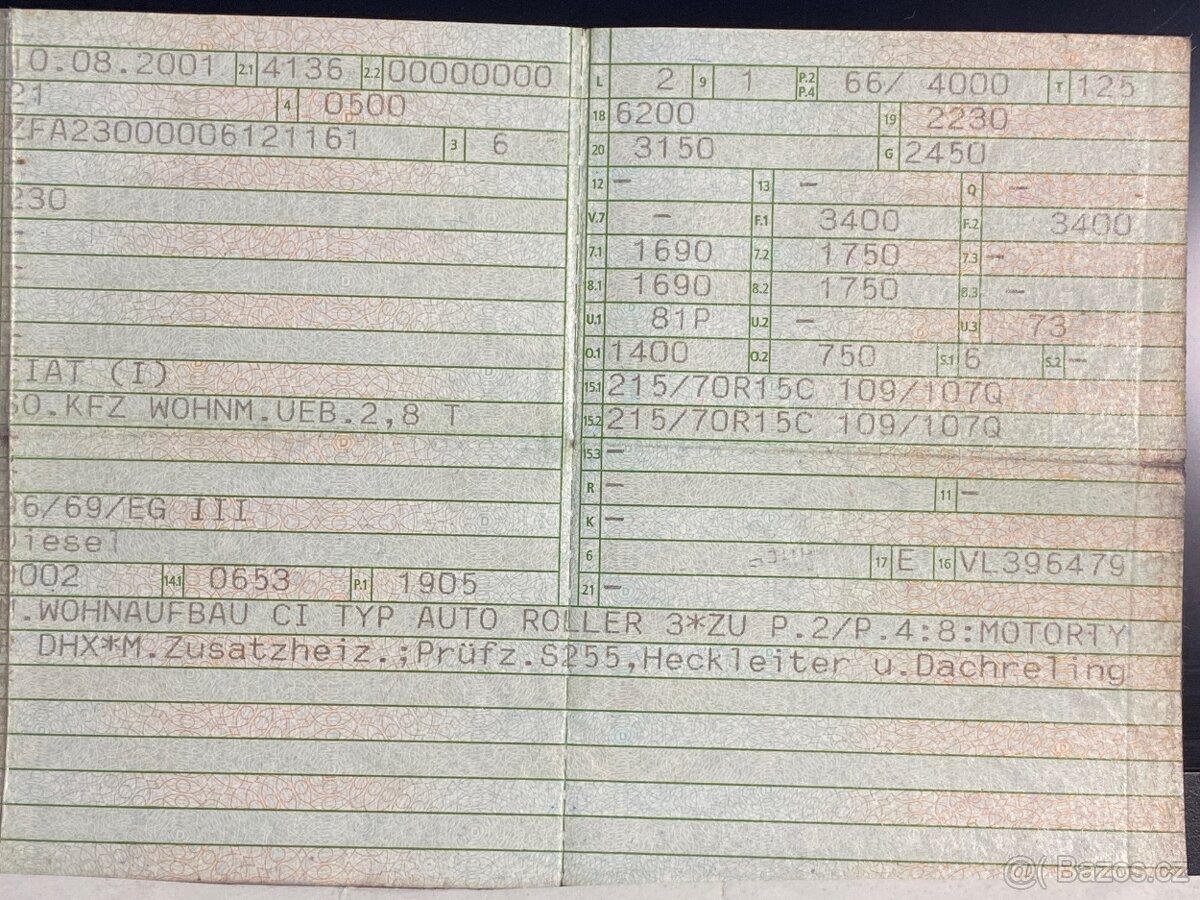 10.08.2001 2.1 4136 2.2 00000000
21 4 0500
ZFA23000006121161 3 6
230
-
-
FIAT (I)
SO.KFZ WOHNM.UEB.2,8 T
96/69/EG III
Diesel
0002 14.1 0653 P.1 1905
L 2 9 1 P.2 P.4 66/ 4000 T 125
18 6200 19 2230
20 3150 G 2450
12 – 13 – Q –
V.7 – F.1 3400 F.2 3400
7.1 1690 7.2 1750 7.3 –
8.1 1690 8.2 1750 8.3 –
U.1 81P U.2 – U.3 73
O.1 1400 O.2 750 S.1 6 S.2 –
15.1 215/70R15C 109/107Q
15.2 215/70R15C 109/107Q
15.3 –
R – 11 –
K –
6 17 E 16 VL396479
21 –
M.WOHNAUFBAU CI TYP AUTO ROLLER 3*ZU P.2/P.4:8:MOTORTY
DHX*M.Zusatzheiz.;Prüfz.S255,Heckleiter u.Dachreling
Bazos.cz